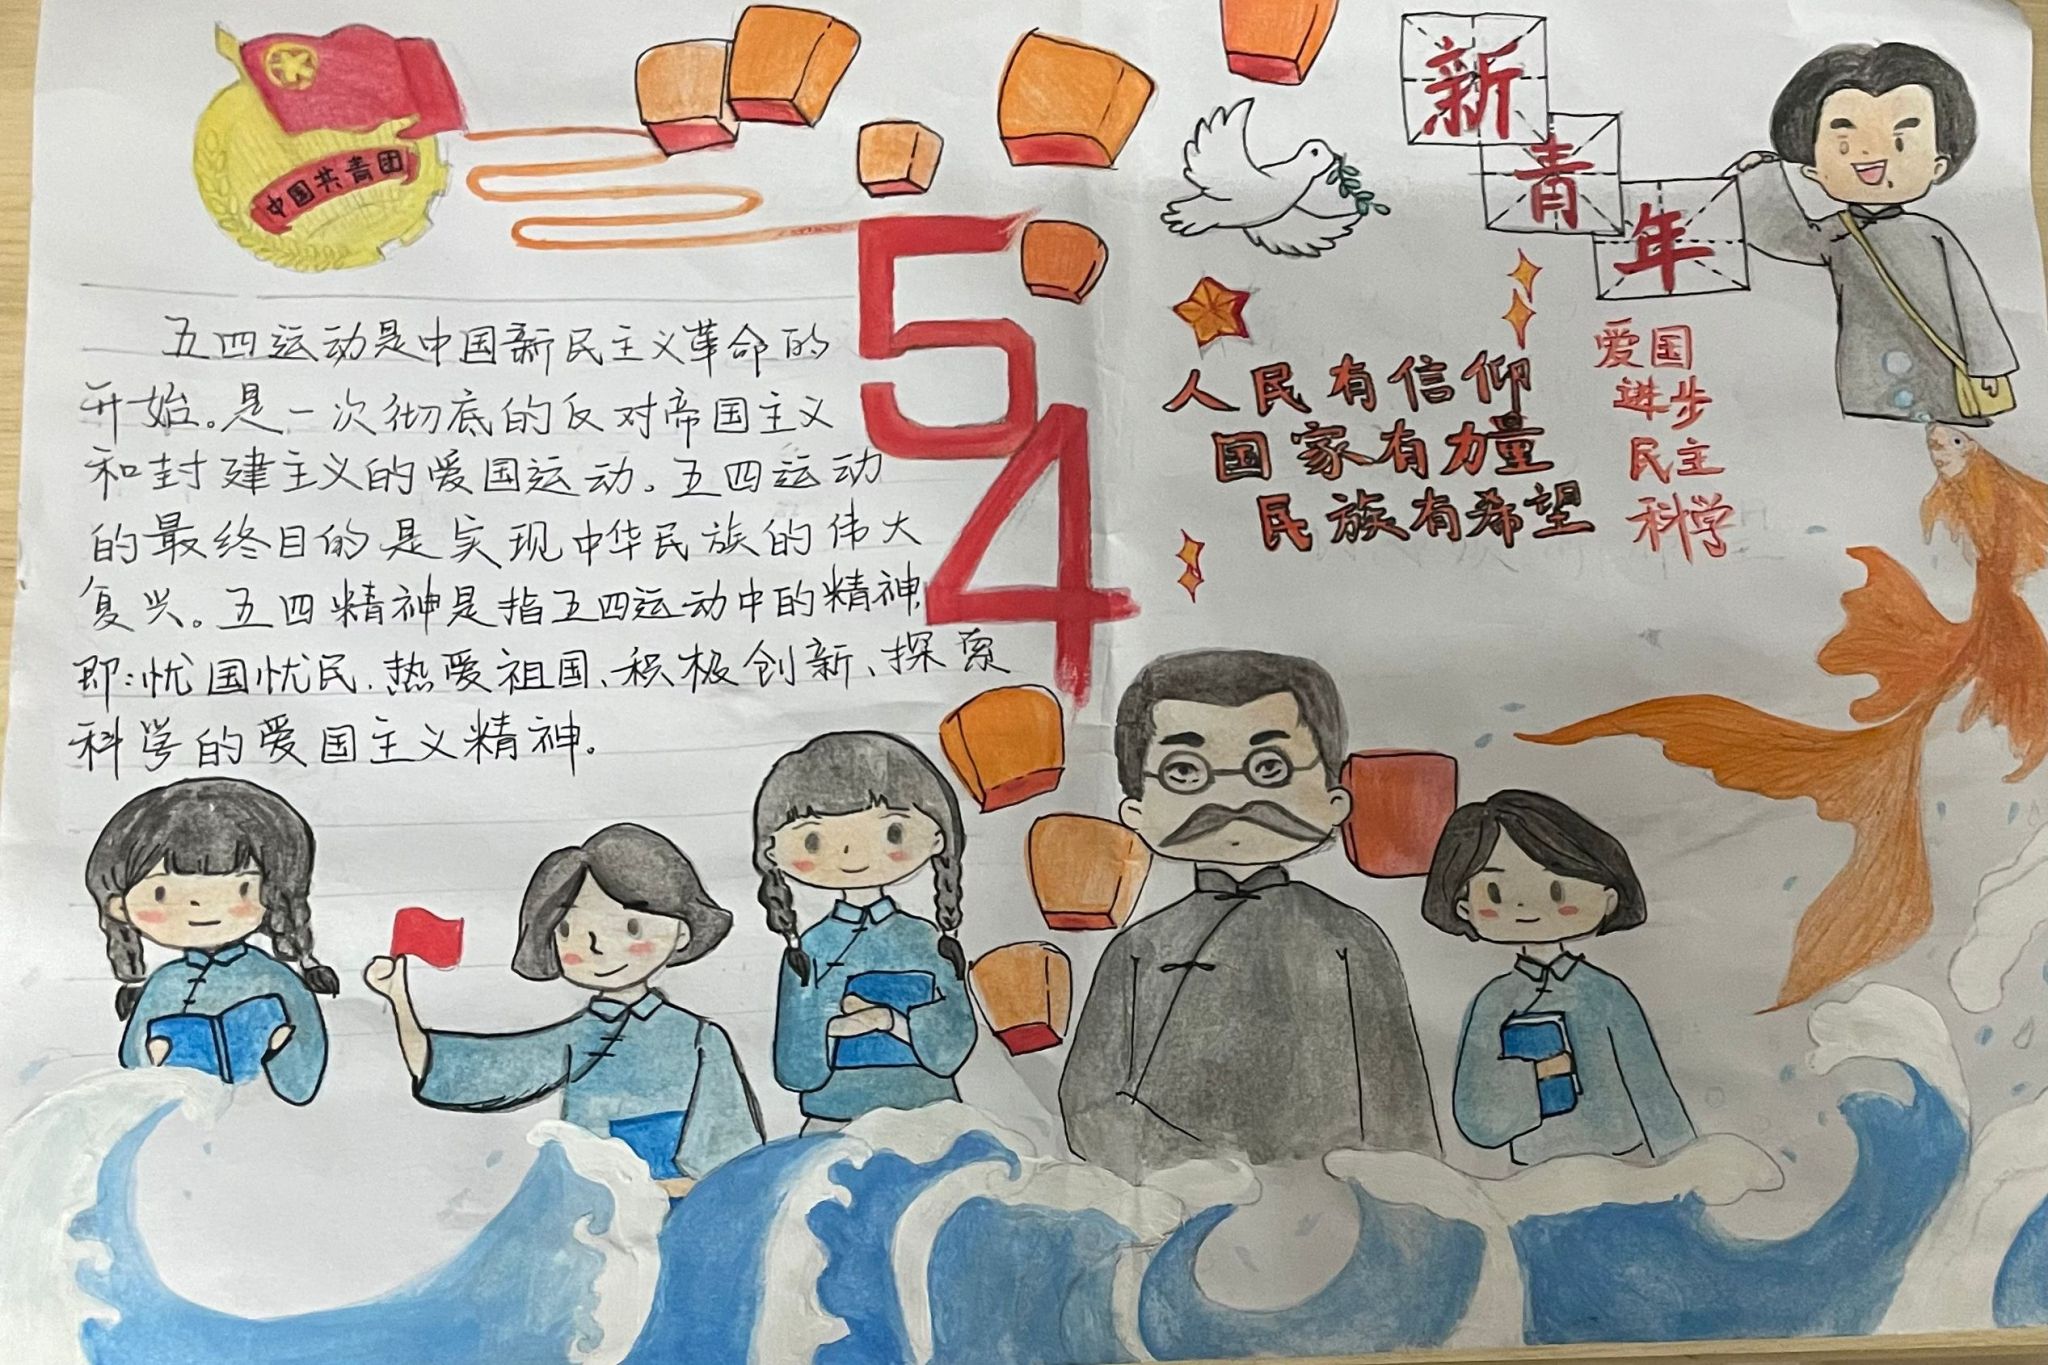 中国共青团
五四运动是中国新民主义革命的
开始。是一次彻底的反对帝国主义
和封建主义的爱国运动。五四运动
的最终目的是实现中华民族的伟大
复兴。五四精神是指五四运动中的精神,
即:忧国忧民、热爱祖国、积极创新、探索
科学的爱国主义精神。
54
新青年
人民有信仰
国家有力量
民族有希望
爱国
进步
民主
科学